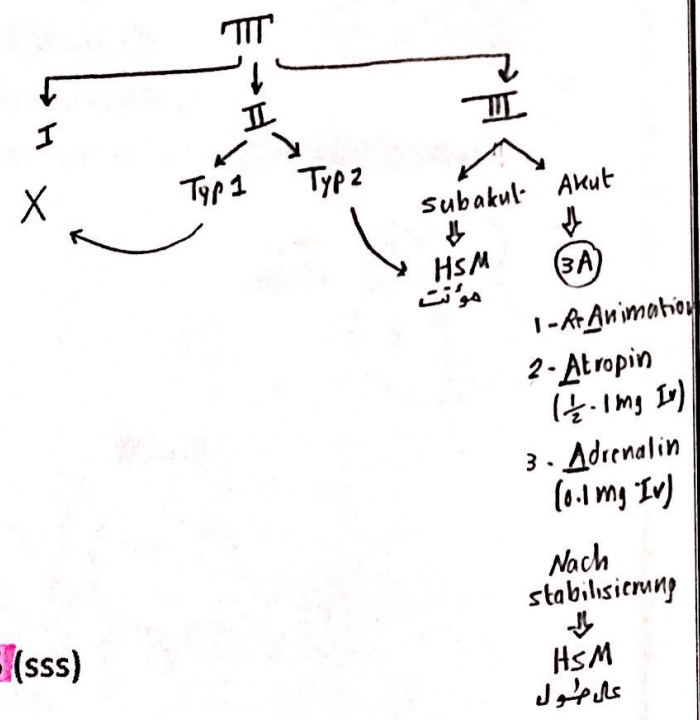 III
I
II
III
X
Typ 1
Typ 2
subakut
Akut
HSM
مؤقت
3A
1 - ReAnimation
2 - Atropin
(½ - 1 mg Iv)
3 - Adrenalin
(0.1 mg Iv)
Nach
stabilisierung
HSM
على طول
(sss)